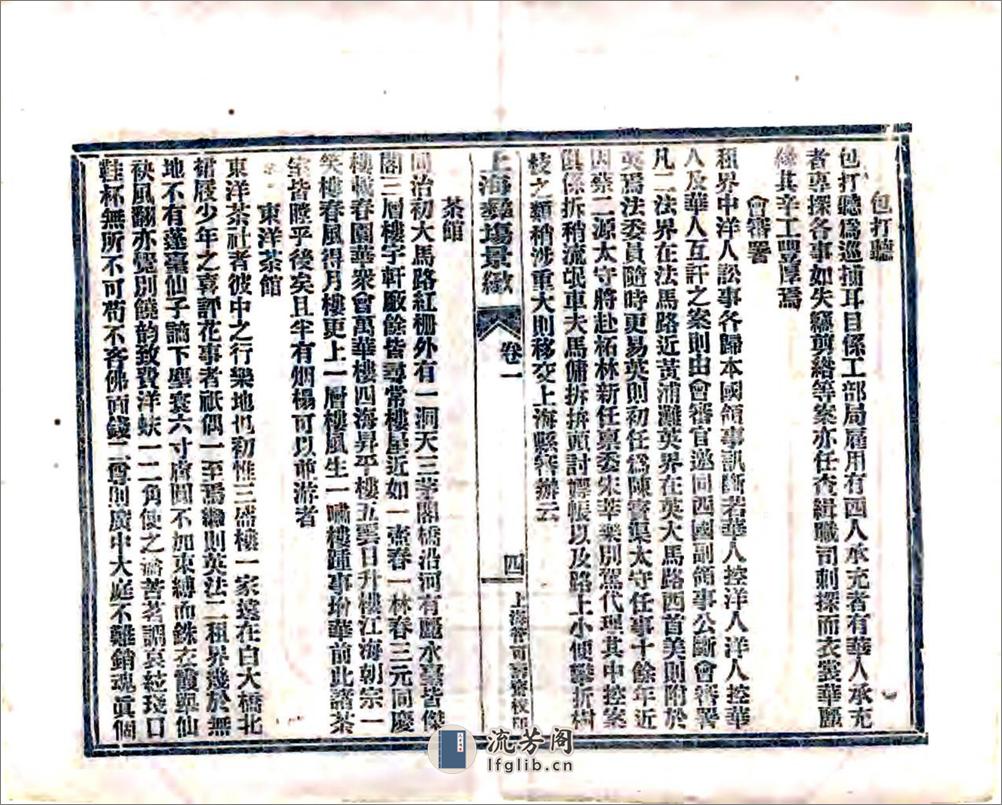 包打聽
包打聽爲巡捕耳目係工部局雇用有西人承充者有華人承充
者專探各事如失竊剪綹等案亦任查緝職司刺探而衣裳華麗
緣其辛工豐厚焉
會審署
租界中洋人訟事各歸本國領事訊斷若華人控洋人洋人控華
人及華人互訐之案則由會審官邀同西國副領事公斷會審署
凡二法界在法馬路近黃浦灘英界在英大馬路西首美則附於
英焉法委員隨時更易英則初任爲陳寶渠太守任事十餘年近
因蔡二源太守將赴柘林新任稟委朱莘樂別駕代理其中控案
俱係拆稍流氓車夫馬傭拚拚頭討嫖帳以及路上小便攀折樹
枝之類稍涉重大則移交上海縣審辦云
上海彝塲景緻 卷一 四 上海管可壽齋校印
茶館
同治初大馬路紅栅外有一洞天三茅閣橋沿河有麗水臺皆傑
閣三層樓宇軒厰餘皆尋常樓屋近如一壼春一林春三元同慶
樓懷春園華衆會萬華樓四海昇平樓五雲日升樓江海朝宗一
笑樓春風得月樓更上一層樓風生一嘯樓踵事增華前此諸茶
室皆瞠乎後矣且半有烟榻可以並游者
東洋茶館
東洋茶社者彼中之行樂地也初惟三盛樓一家遠在白大橋北
裙屐少年之喜評花事者祇偶一至焉繼則英法二租界幾於無
地不有蓬萊仙子謫下塵寰六寸膚圓不加束縛而銖衣霞與仙
袂風翻亦覺別饒韵致費洋蚨一二角使之瀹苦茗調哀絃琖口
鞋杯無所不可苟不吝佛面錢二尊則廣中大庭不難銷魂眞個
流芳阁
lfglib.cn